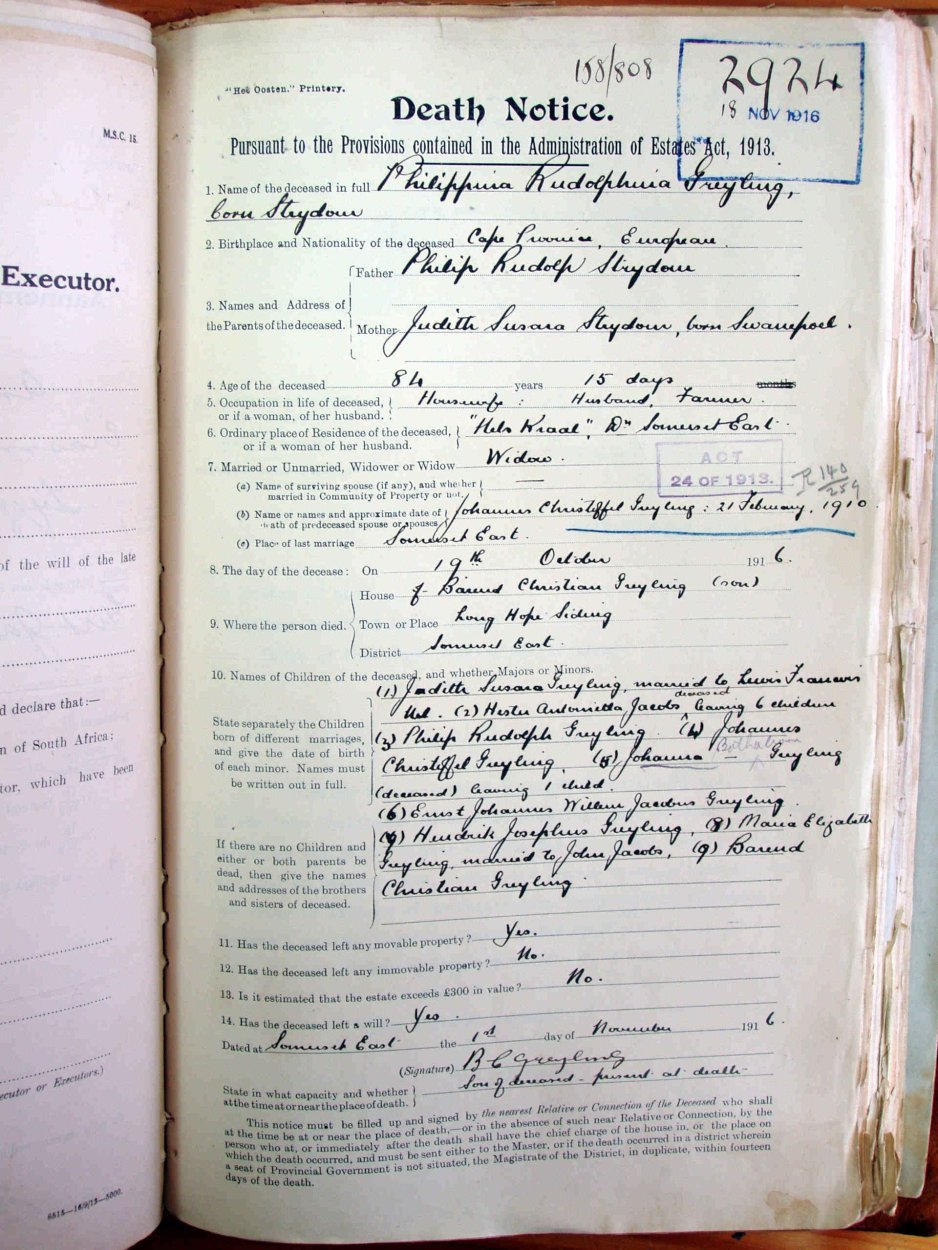 M.S.C. 15.
Executor.
of the will of the late
d declare that :—
n of South Africa;
tor, which have been
ecutor or Executors.)
6815—16/9/13—5000.
"Het Oosten." Printery.
158/808
2924
18 NOV 1916
Death Notice.
Pursuant to the Provisions contained in the Administration of Estates Act, 1913.
1. Name of the deceased in full Philippina Rudolphina Greyling,
born Strydom
2. Birthplace and Nationality of the deceased Cape Province, European.
Father Philip Rudolf Strydom
3. Names and Address of
the Parents of the deceased.
Mother Judith Susara Strydom, born Swanepoel.
4. Age of the deceased 84 years 15 days months
5. Occupation in life of deceased, Housewife: Husband, Farmer.
or if a woman, of her husband.
6. Ordinary place of Residence of the deceased, "Hels Kraal", Dn Somerset East.
or if a woman of her husband.
7. Married or Unmarried, Widower or Widow Widow.
ACT
24 OF 1913.
140
259
(a) Name of surviving spouse (if any), and whether —
married in Community of Property or not.
(b) Name or names and approximate date of Johannes Christoffel Greyling: 21 February, 1910
death of predeceased spouse or spouses
(c) Place of last marriage Somerset East.
8. The day of the decease: On 19th October 1916.
House of Barend Christian Greyling (son)
9. Where the person died. Town or Place Long Hope Siding
District Somerset East.
10. Names of Children of the deceased, and whether Majors or Minors.
(1) Judith Susara Greyling, married to Lewis Francois
deceased
Nel. (2) Hester Antonietta Jacobs leaving 6 children
State separately the Children
born of different marriages,
and give the date of birth
of each minor. Names must
be written out in full.
(3) Philip Rudolph Greyling. (4) Johannes
Christoffel Greyling, (5) Johanna — Greyling
(deceased) leaving 1 child.
(6) Ernst Johannes Willem Jacobus Greyling
(7) Hendrik Josephus Greyling, (8) Maria Elizabeth
Greyling, married to John Jacobs, (9) Barend
Christian Greyling.
If there are no Children and
either or both parents be
dead, then give the names
and addresses of the brothers
and sisters of deceased.
11. Has the deceased left any movable property? Yes.
12. Has the deceased left any immovable property? No.
13. Is it estimated that the estate exceeds £300 in value? No.
14. Has the deceased left a will? Yes.
Dated at Somerset East the 1st day of November 1916.
(Signature) B C Greyling
Son of deceased - present at death-
State in what capacity and whether
at the time at or near the place of death.
This notice must be filled up and signed by the nearest Relative or Connection of the Deceased who shall
at the time be at or near the place of death,—or in the absence of such near Relative or Connection, by the
person who at, or immediately after the death shall have the chief charge of the house in, or the place on
which the death occurred, and must be sent either to the Master, or if the death occurred in a district wherein
a seat of Provincial Government is not situated, the Magistrate of the District, in duplicate, within fourteen
days of the death.